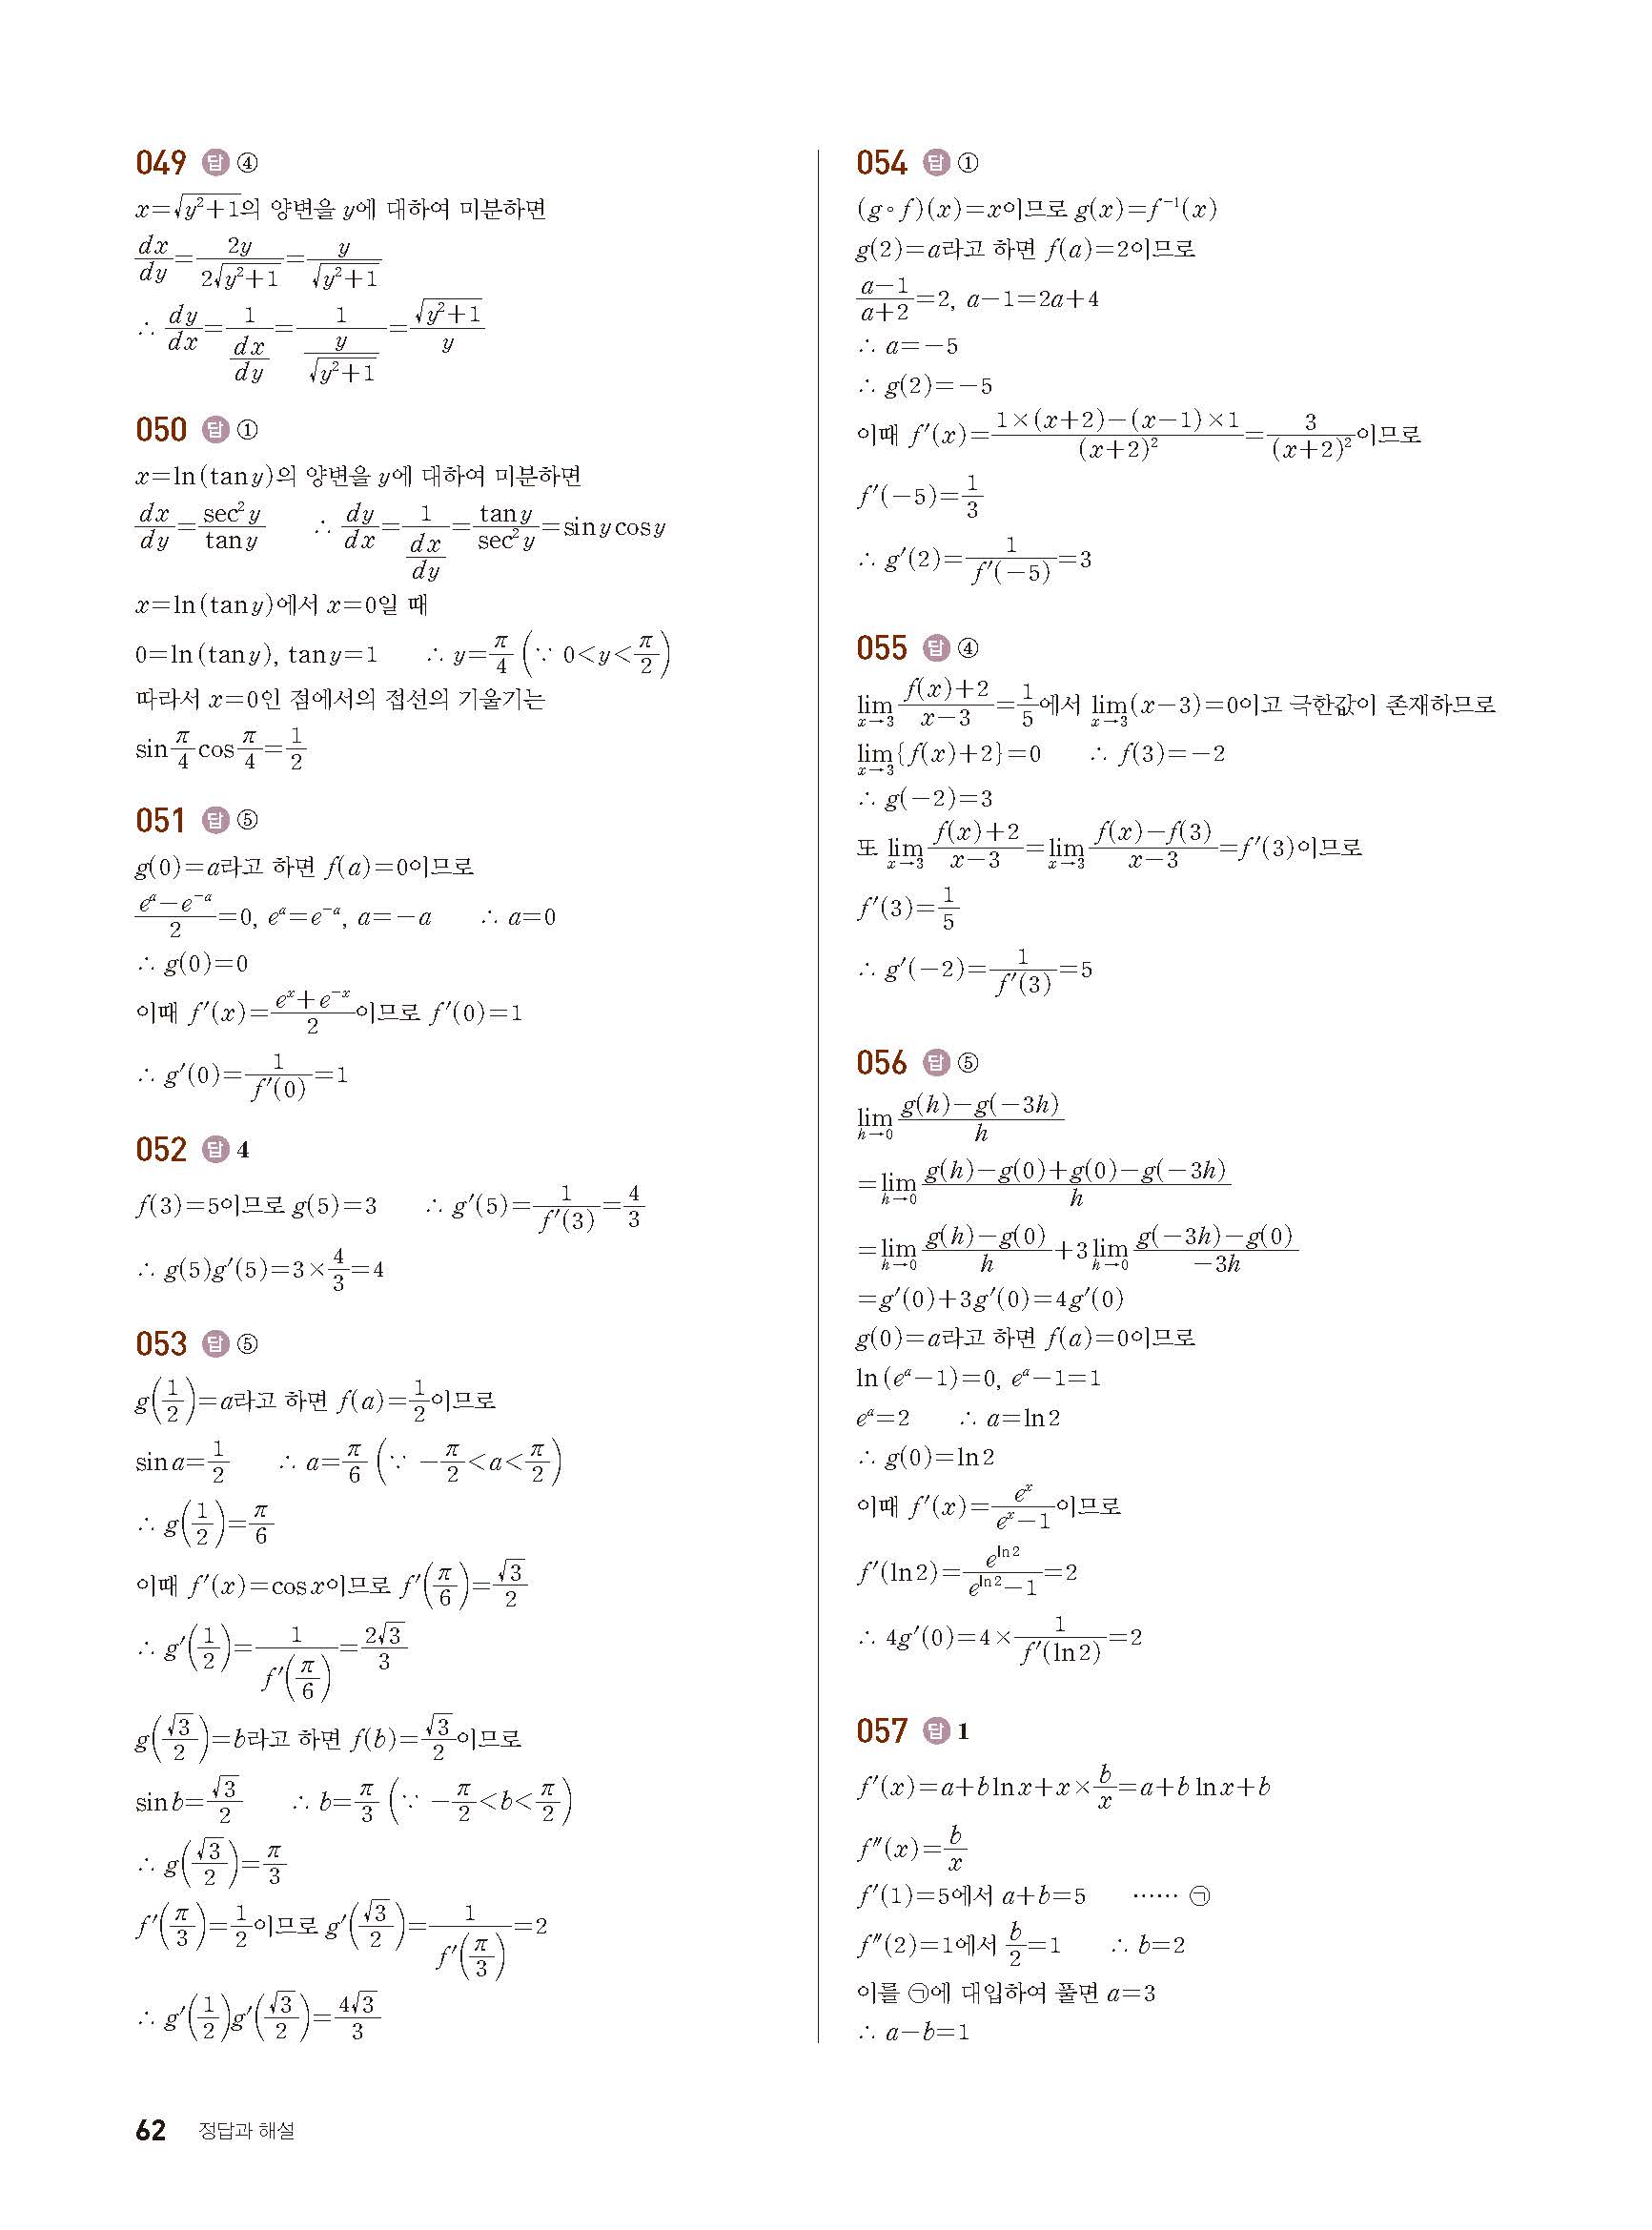 049 답 ④
x=√(y²+1)의 양변을 y에 대하여 미분하면
dx/dy=2y/(2√(y²+1))=y/√(y²+1)
∴ dy/dx=1/(dx/dy)=1/(y/√(y²+1))=√(y²+1)/y
050 답 ①
x=ln(tan y)의 양변을 y에 대하여 미분하면
dx/dy=sec²y/tan y ∴ dy/dx=1/(dx/dy)=tan y/sec²y=sin y cos y
x=ln(tan y)에서 x=0일 때
0=ln(tan y), tan y=1 ∴ y=π/4 (∵ 0<y<π/2)
따라서 x=0인 점에서의 접선의 기울기는
sin π/4 cos π/4=1/2
051 답 ⑤
g(0)=a라고 하면 f(a)=0이므로
(eᵃ-e⁻ᵃ)/2=0, eᵃ=e⁻ᵃ, a=-a ∴ a=0
∴ g(0)=0
이때 f′(x)=(eˣ+e⁻ˣ)/2이므로 f′(0)=1
∴ g′(0)=1/f′(0)=1
052 답 4
f(3)=5이므로 g(5)=3 ∴ g′(5)=1/f′(3)=4/3
∴ g(5)g′(5)=3×4/3=4
053 답 ⑤
g(1/2)=a라고 하면 f(a)=1/2이므로
sin a=1/2 ∴ a=π/6 (∵ -π/2<a<π/2)
∴ g(1/2)=π/6
이때 f′(x)=cos x이므로 f′(π/6)=√3/2
∴ g′(1/2)=1/f′(π/6)=2√3/3
g(√3/2)=b라고 하면 f(b)=√3/2이므로
sin b=√3/2 ∴ b=π/3 (∵ -π/2<b<π/2)
∴ g(√3/2)=π/3
f′(π/3)=1/2이므로 g′(√3/2)=1/f′(π/3)=2
∴ g′(1/2)g′(√3/2)=4√3/3
054 답 ①
(g∘f)(x)=x이므로 g(x)=f⁻¹(x)
g(2)=a라고 하면 f(a)=2이므로
(a-1)/(a+2)=2, a-1=2a+4
∴ a=-5
∴ g(2)=-5
이때 f′(x)=(1×(x+2)-(x-1)×1)/(x+2)²=3/(x+2)²이므로
f′(-5)=1/3
∴ g′(2)=1/f′(-5)=3
055 답 ④
lim x→3 (f(x)+2)/(x-3)=1/5에서 lim x→3 (x-3)=0이고 극한값이 존재하므로
lim x→3 {f(x)+2}=0 ∴ f(3)=-2
∴ g(-2)=3
또 lim x→3 (f(x)+2)/(x-3)=lim x→3 (f(x)-f(3))/(x-3)=f′(3)이므로
f′(3)=1/5
∴ g′(-2)=1/f′(3)=5
056 답 ⑤
lim h→0 (g(h)-g(-3h))/h
=lim h→0 (g(h)-g(0)+g(0)-g(-3h))/h
=lim h→0 (g(h)-g(0))/h+3 lim h→0 (g(-3h)-g(0))/(-3h)
=g′(0)+3g′(0)=4g′(0)
g(0)=a라고 하면 f(a)=0이므로
ln(eᵃ-1)=0, eᵃ-1=1
eᵃ=2 ∴ a=ln 2
∴ g(0)=ln 2
이때 f′(x)=eˣ/(eˣ-1)이므로
f′(ln 2)=e^(ln 2)/(e^(ln 2)-1)=2
∴ 4g′(0)=4×1/f′(ln 2)=2
057 답 1
f′(x)=a+b ln x+x×b/x=a+b ln x+b
f″(x)=b/x
f′(1)=5에서 a+b=5 …… ㉠
f″(2)=1에서 b/2=1 ∴ b=2
이를 ㉠에 대입하여 풀면 a=3
∴ a-b=1
62 정답과 해설